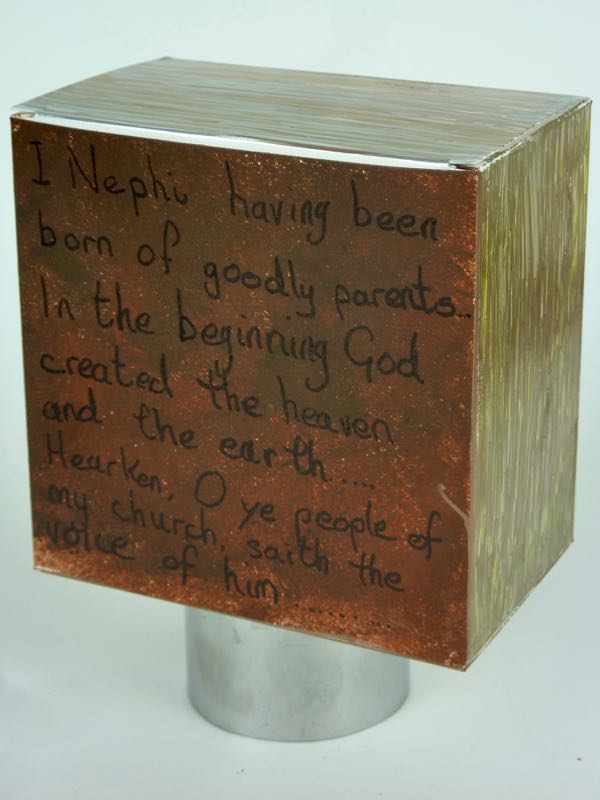 I Nephi having been
born of goodly parents..
In the beginning God
created the heaven
and the earth....
Hearken, O ye people of
my church, saith the
voice of him .........